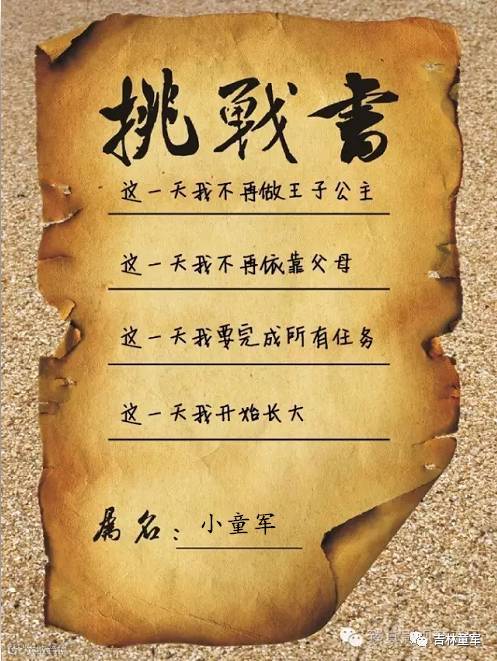 挑戰書
这一天我不再做王子公主
这一天我不再依靠父母
这一天我要完成所有任务
这一天我开始长大
属名：小童军
吉林童军